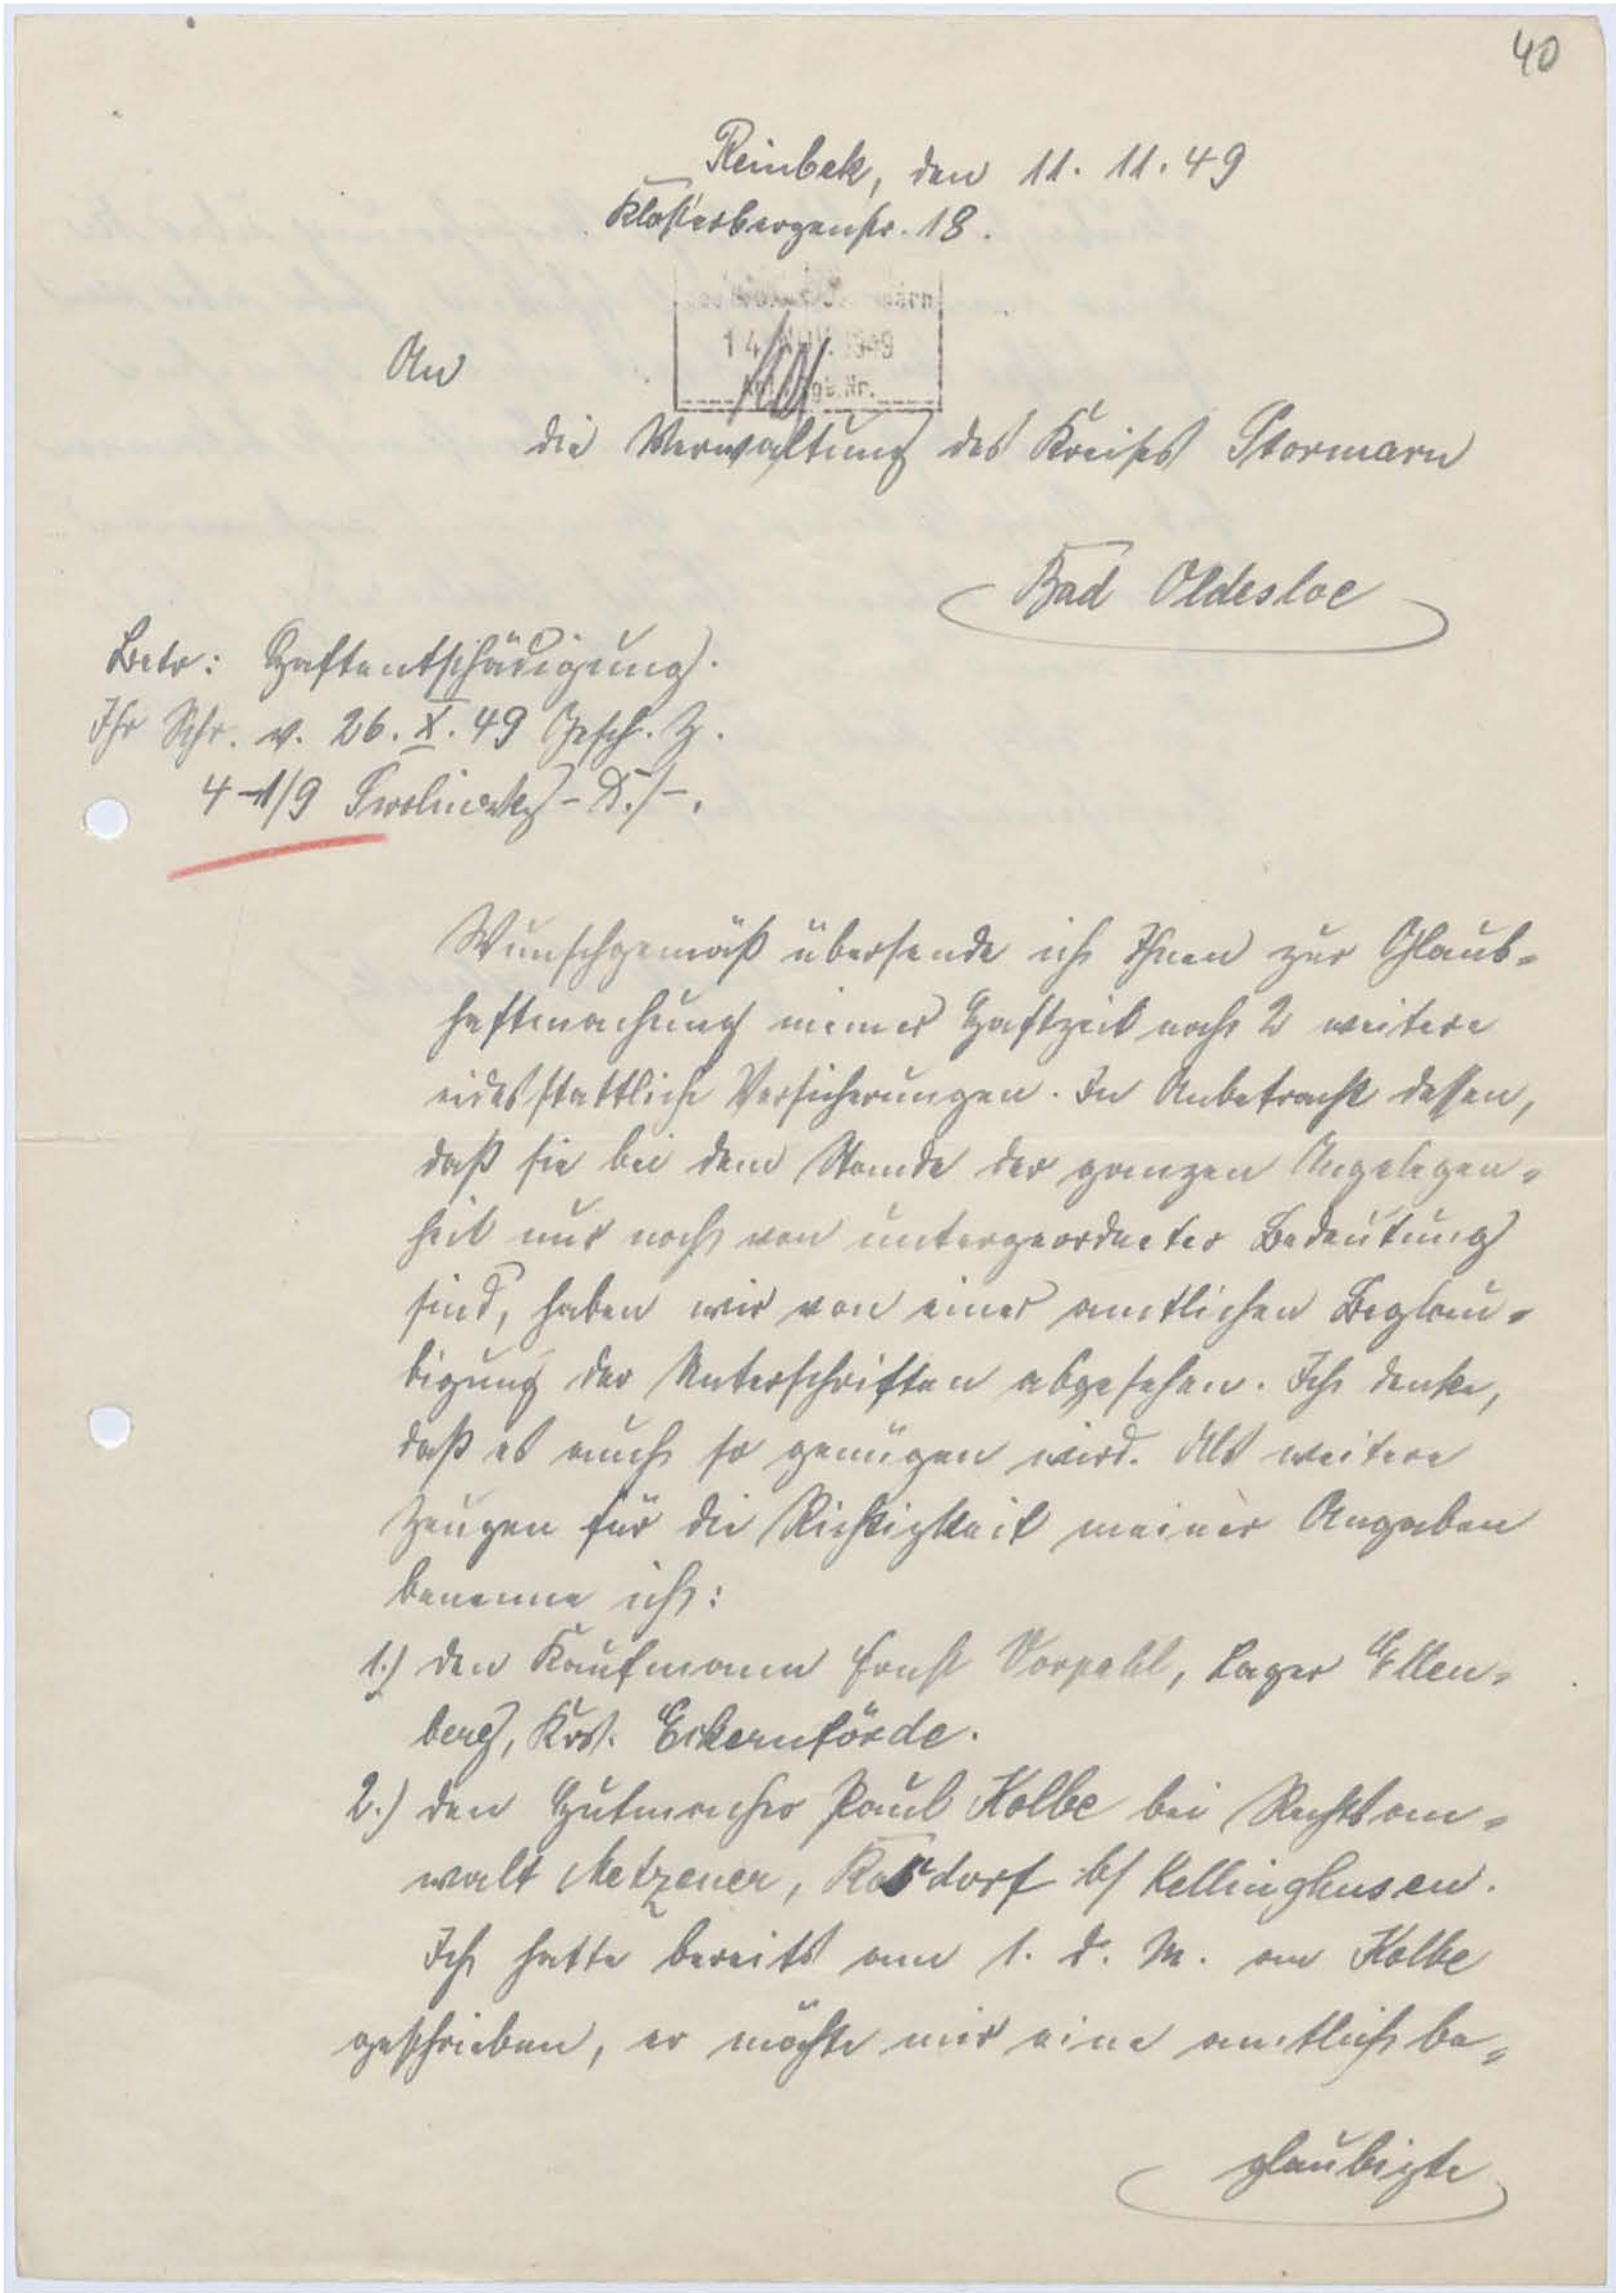 40
Reinbek, den 11. 11. 49
Klosterbergenstr. 18.
14. NOV. 1949
An
die Verwaltung des Kreises Stormarn
Bad Oldesloe
Betr: Haftentschädigung.
Ihr Schr. v. 26. X. 49 Gesch. Z.
4-1/9 - D./-.
Wunschgemäß übersende ich Ihnen zur Glaub-
haftmachung meiner Haftzeit noch 2 weitere
eidesstattliche Versicherungen. In Anbetracht dessen,
daß sie bei dem Stande der ganzen Angelegen-
heit nur noch von untergeordneter Bedeutung
sind, haben wir von einer amtlichen Beglau-
bigung der Unterschriften abgesehen. Ich denke,
daß es auch so genügen wird. Als weitere
Zeugen für die Richtigkeit meiner Angaben
benenne ich:
1.) den Kaufmann Ernst Vorpahl, Lager Ellen-
berg, Krs. Eckernförde.
2.) den Hutmacher Paul Kolbe bei Rechtsan-
walt Metzener, Rosdorf b/ Kellinghusen.
Ich hatte bereits am 1. d. M. an Kolbe
geschrieben, er möchte mir eine amtlich be-
glaubigte